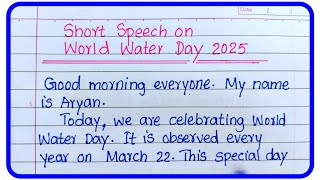 Short Speech on
World Water Day 2025
Good morning everyone. My name
is Aryan.
Today, we are celebrating World
Water Day. It is observed every
year on March 22. This special day